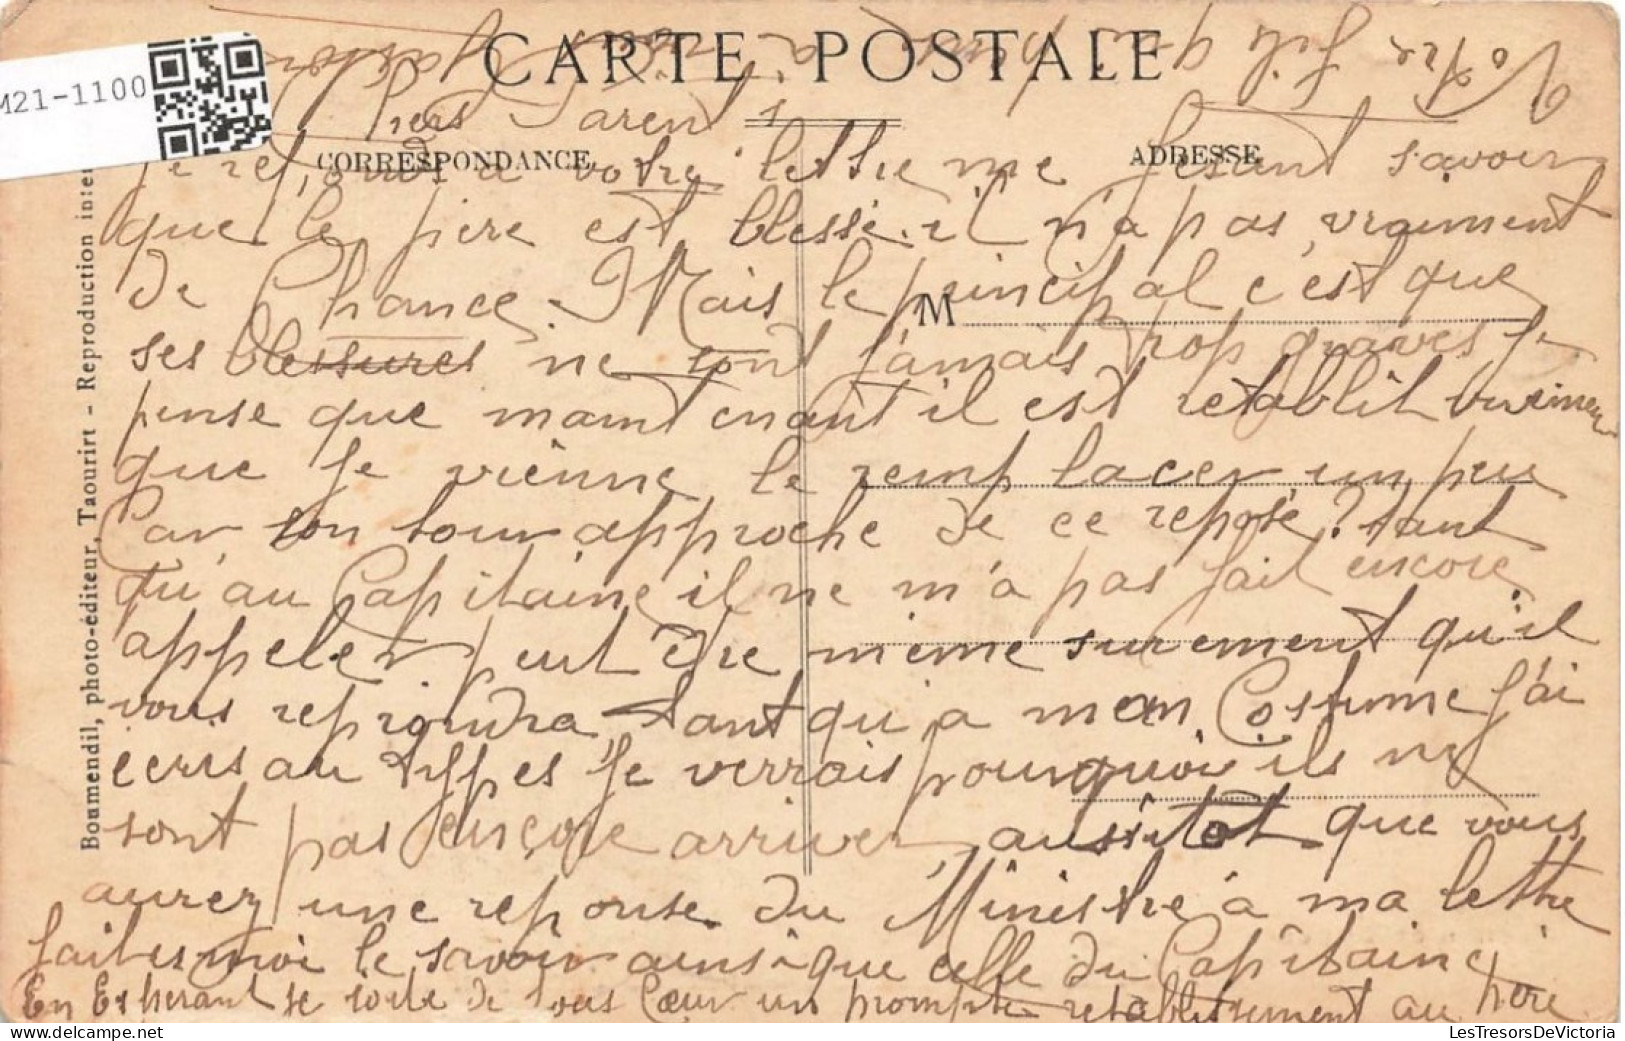 CARTE POSTALE
Votre fils qui pense à vous Gaston
M21-1100
Chers Parents
CORRESPONDANCE
ADRESSE
Je réponds à votre lettre me fesant savoir
que le père est blessé. il n'a pas vraiment
de Chance. Mais le principal c'est que
M
ses blessures ne sont jamais trop graves je
pense que maintenant il est retablit vivement
que je vienne le remplacer un peu
Car son tour approche de ce reposé? tant
qu'au Capitaine il ne m'a pas fait encore
appeler peut être même surement qu'il
vous repondra tant qu'a mon Costume j'ai
ecris au types je verrais pourquoi ils ne
sont pas encore arriver aussitôt que vous
aurez une reponse du Ministre à ma lettre
faites moi le savoir ainsi que celle du Capitaine
En Esperant se soite de tous Cœur un prompte retablissement au père
Boumendil, photo-éditeur, Taourirt - Reproduction inter
LesTresorsDeVictoria